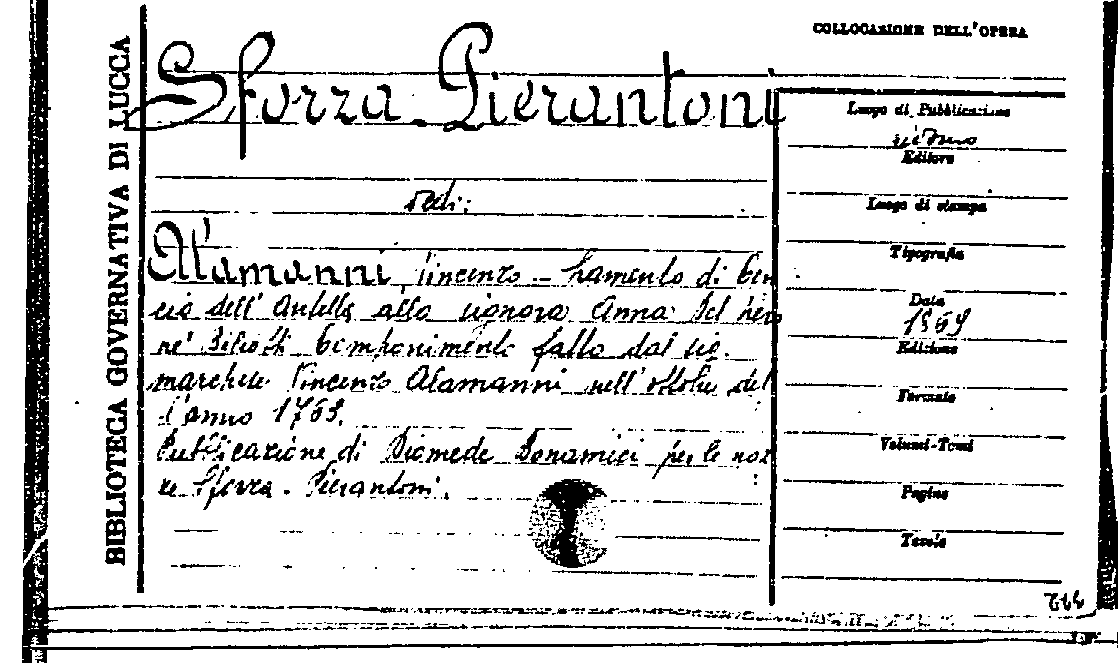 COLLOCAZIONE DELL'OPERA
BIBLIOTECA GOVERNATIVA DI LUCCA
Sforza - Pierantoni
vedi:
Alamanni, Vincenzo - Lamento di Cen
cio dell'Antella alla signora Anna Del Nero
ne' Biliotti Componimento fatto dal sig.
marchese Vincenzo Alamanni nell'ottobre del
l'anno 1763.
Pubblicazione di Diomede Bonamici per le noz
ze Sforza - Pierantoni.
Luogo di Pubblicazione
Editore
Luogo di stampa
Tipografia
Data
1869
Edizione
Formato
Volumi-Tomi
Pagine
Tavole